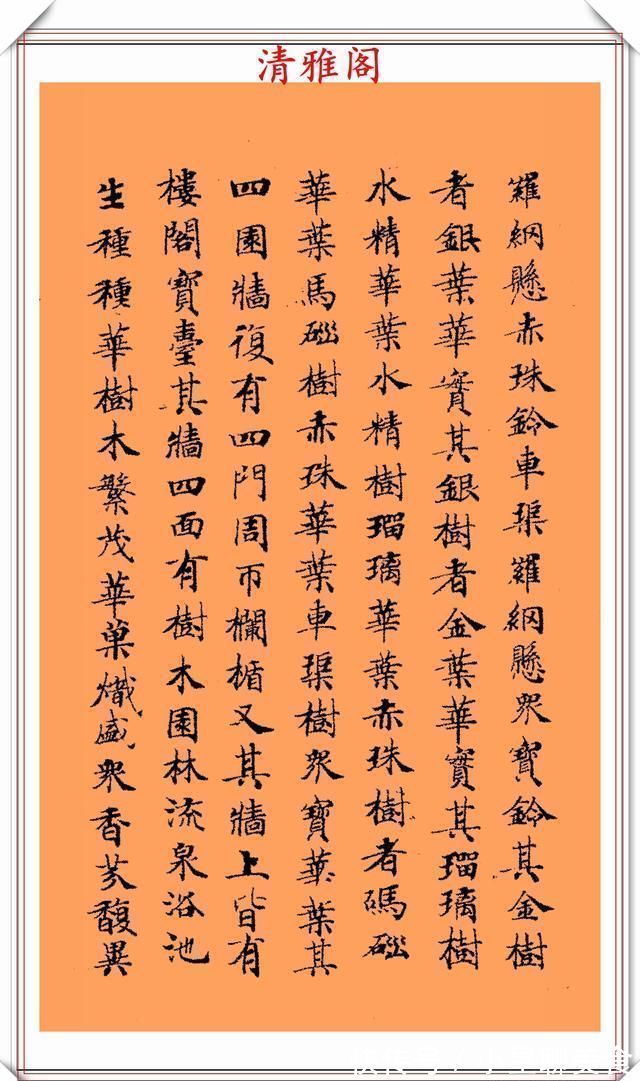 清雅阁
羅網懸赤珠鈴車渠羅網懸眾寶鈴其金樹
者銀葉華實其銀樹者金葉華實其瑠璃樹
水精華葉水精樹瑠璃華葉赤珠樹者碼碯
華葉馬碯樹赤珠華葉車渠樹眾寶華葉其
四園牆復有四門周帀欄楯又其牆上皆有
樓閣寶臺其牆四面有樹木園林流泉浴池
生種種華樹木繁茂華菓熾盛眾香芬馥異